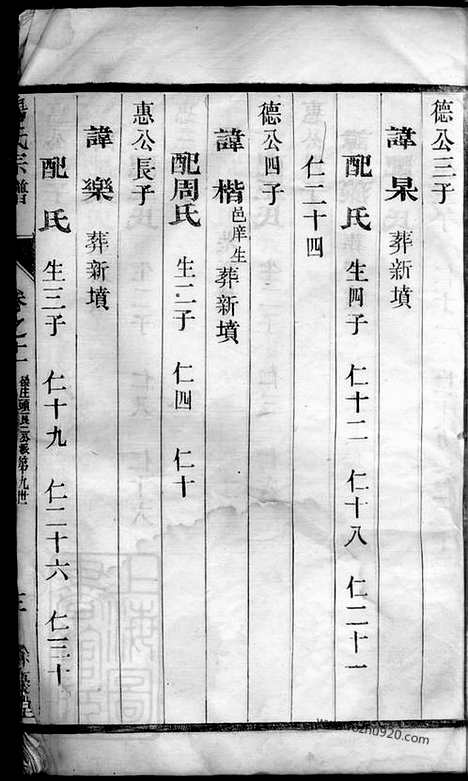 德公三子
諱杲 葬新墳
配氏 生四子 仁十二 仁十八 仁二十一
仁二十四
德公四子
諱楷 邑庠生 葬新墳
配周氏 生二子 仁四 仁十
惠公長子
諱樂 葬新墳
配氏 生三子 仁十九 仁二十六 仁三十
氏宗譜 卷之十
第九世
www.wozhu920.com